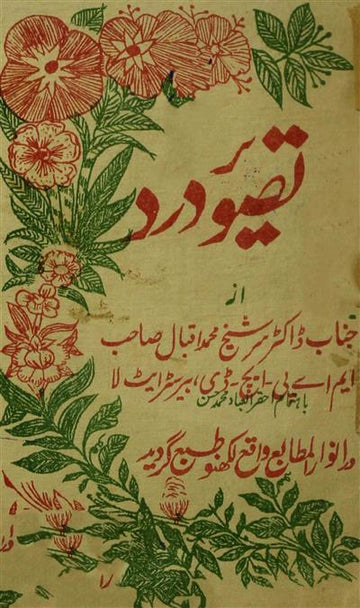 تصویر درد
از
جناب ڈاکٹر سر شیخ محمد اقبال صاحب
ایم اے پی-ایچ-ڈی، بیرسٹر ایٹ لا
باہتمام احقر العباد محمد حسن
در انوار المطابع واقع لکھنو طبع گردید